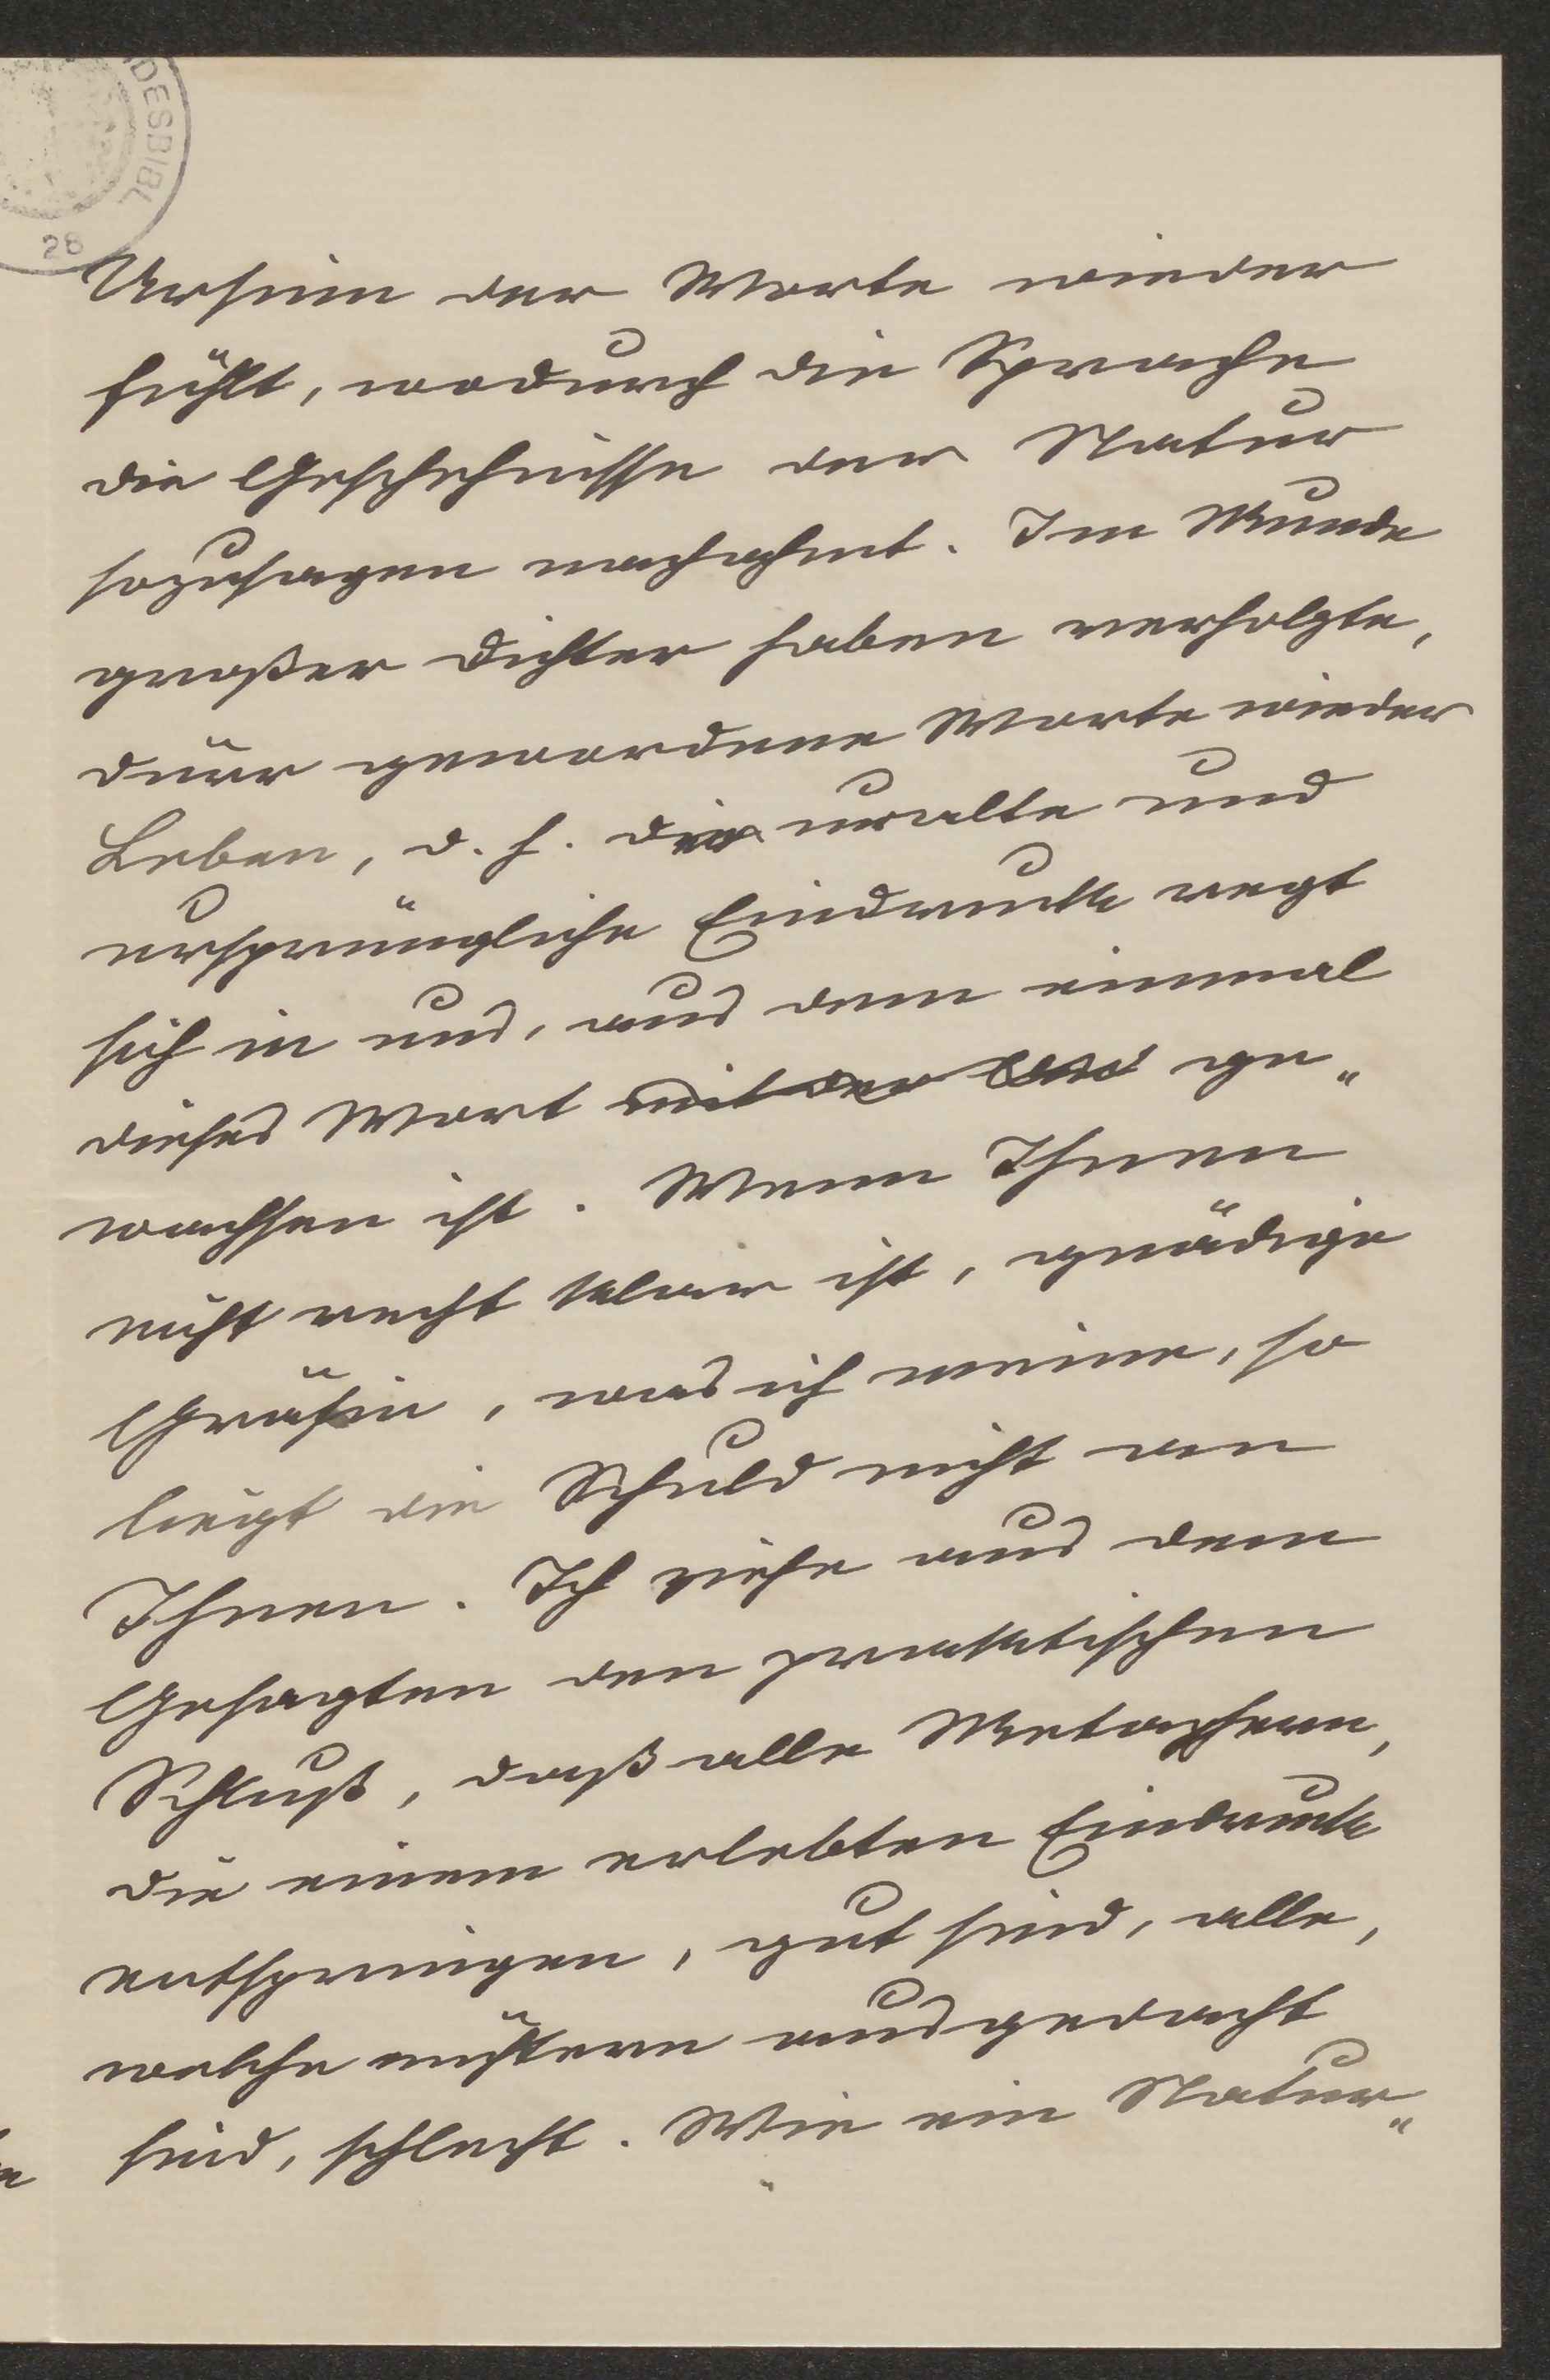 DESBIBL
28
Ursinn der Worte wieder
fühlt, wodurch die Sprache
die Geschehnisse der Natur
sozusagen nachahmt. Im Munde
großer Dichter haben verfolgte,
dürr gewordene Worte wieder
Leben, d. h. die uralte und
ursprüngliche Eindruck regt
sich in uns, aus dem einmal
dieses Wort ge„
wachsen ist. Wenn Ihnen
nicht recht klar ist, gnädige
Gräfin, was ich meine, so
liegt die Schuld nicht an
Ihnen. Ich ziehe aus dem
Gesagten den praktischen
Schluß, daß alle Metaphern,
die einem erlebten Eindruck
entspringen, gut sind, alle,
welche nüchtern ausgedacht
sind, schlecht. Wie ein Natur„